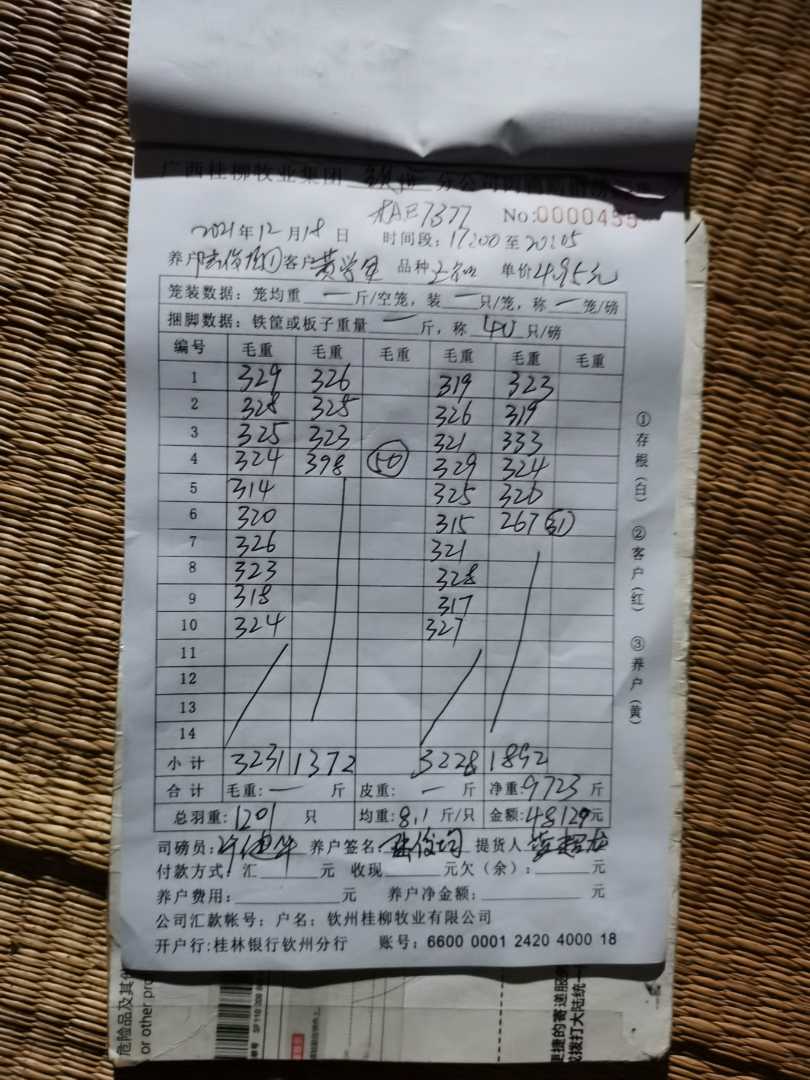 广西桂柳牧业集团 钦州 分公司
桂AE7377 No:0000455
2021年12月18日 时间段：17:00至20:05
养户 陆俊均① 客户 黄 品种 单价4.95元
笼装数据：笼均重 一 斤/空笼，装 一 只/笼，称 一 笼/磅
捆脚数据：铁筐或板子重量 一 斤，称 40 只/磅
编号 毛重 毛重 毛重 毛重 毛重 毛重
1 329 326 319 323
2 328 325 326 319
3 325 323 321 333
4 324 398 (50) 329 324
5 314 325 326
6 320 315 267 (31)
7 326 321
8 323 328
9 318 317
10 324 327
11
12
13
14
小计 3231 1372 3228 1892
合计 毛重：一 斤 皮重：一 斤 净重：9723 斤
总羽重：1201 只 均重：8.1 斤/只 金额：48129元
司磅员： 养户签名：陆俊均 提货人
付款方式：汇 元 收现 元欠（余）： 元
养户费用： 元 养户净金额： 元
公司汇款帐号：户名：钦州桂柳牧业有限公司
开户行：桂林银行钦州分行 账号：6600 0001 2420 4000 18
①存根（白） ②客户（红） ③养户（黄）
危险品及其他
or other pro
更捷的寄递服务
或拨打大陆统一